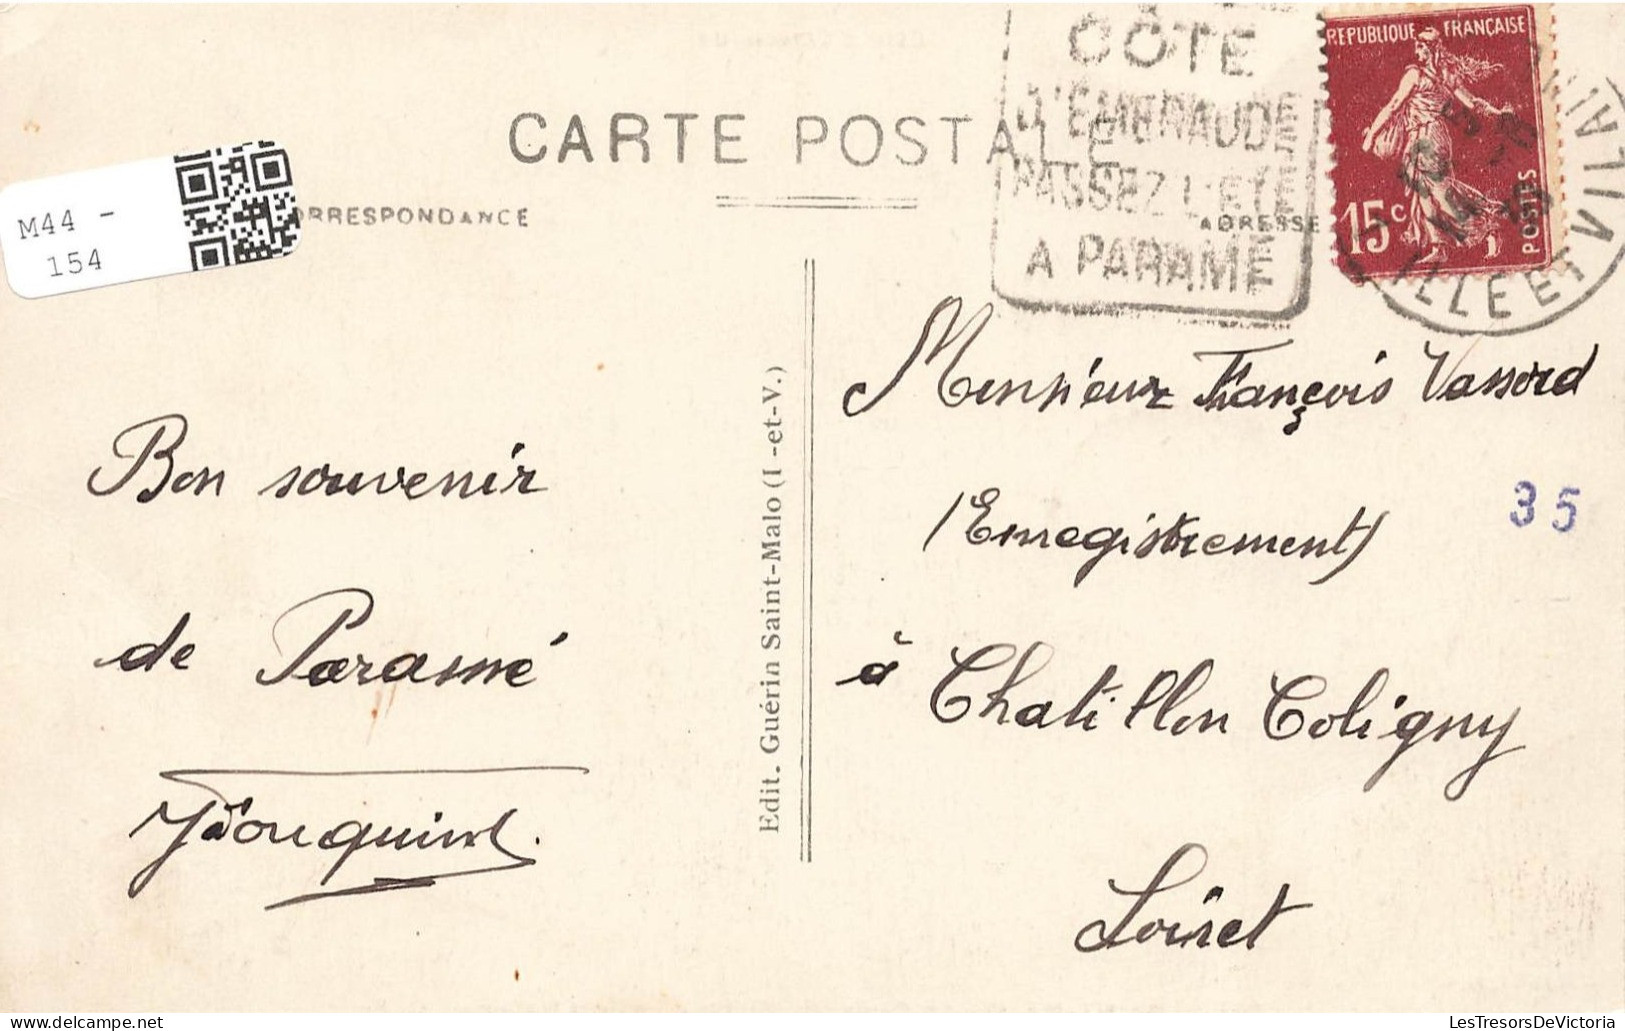 CARTE POSTALE
CORRESPONDANCE
ADRESSE
M44 -
154
CÔTE
D'ÉMERAUDE
PASSEZ L'ÉTÉ
A PARAMÉ
REPUBLIQUE FRANÇAISE
15c
POSTES
ILLE ET VILAINE
Bon souvenir
de Paramé
Edit. Guérin Saint-Malo (I -et-V.)
Monsieur François Vassord
(Enregistrement)
35
à Chatillon Coligny
Loiret
LesTresorsDeVictoria